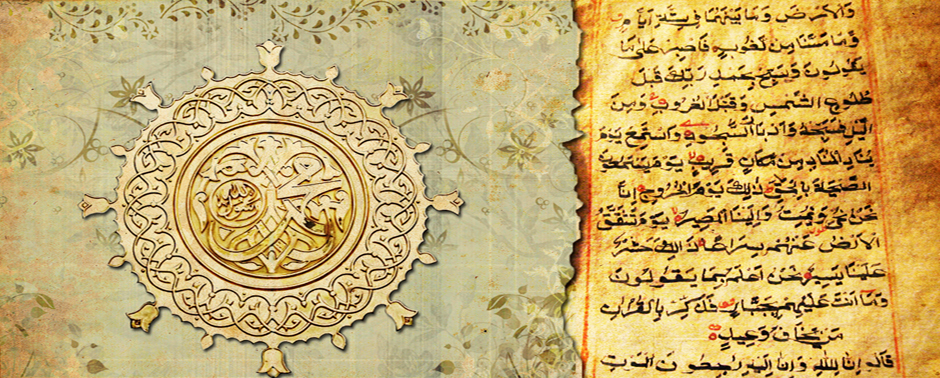 محمد
والارض وما بينهما في ستة ايام
وما مسنا من لغوب فاصبر على ما
يقولون وسبح بحمد ربك قبل
طلوع الشمس وقبل الغروب ومن
اليل فسبحه وادبار السجود واستمع يوم
يناد المناد من مكان قريب يوم يسمعون
الصيحة بالحق ذلك يوم الخروج انا
نحن نحي ونميت والينا المصير يوم تشقق
الارض عنهم سراعا ذلك حشر
علينا يسير نحن اعلم بما يقولون
وما انت عليهم بجبار فذكر بالقران
من يخاف وعيد
قالوا انا لله وانا اليه رجعون الموت